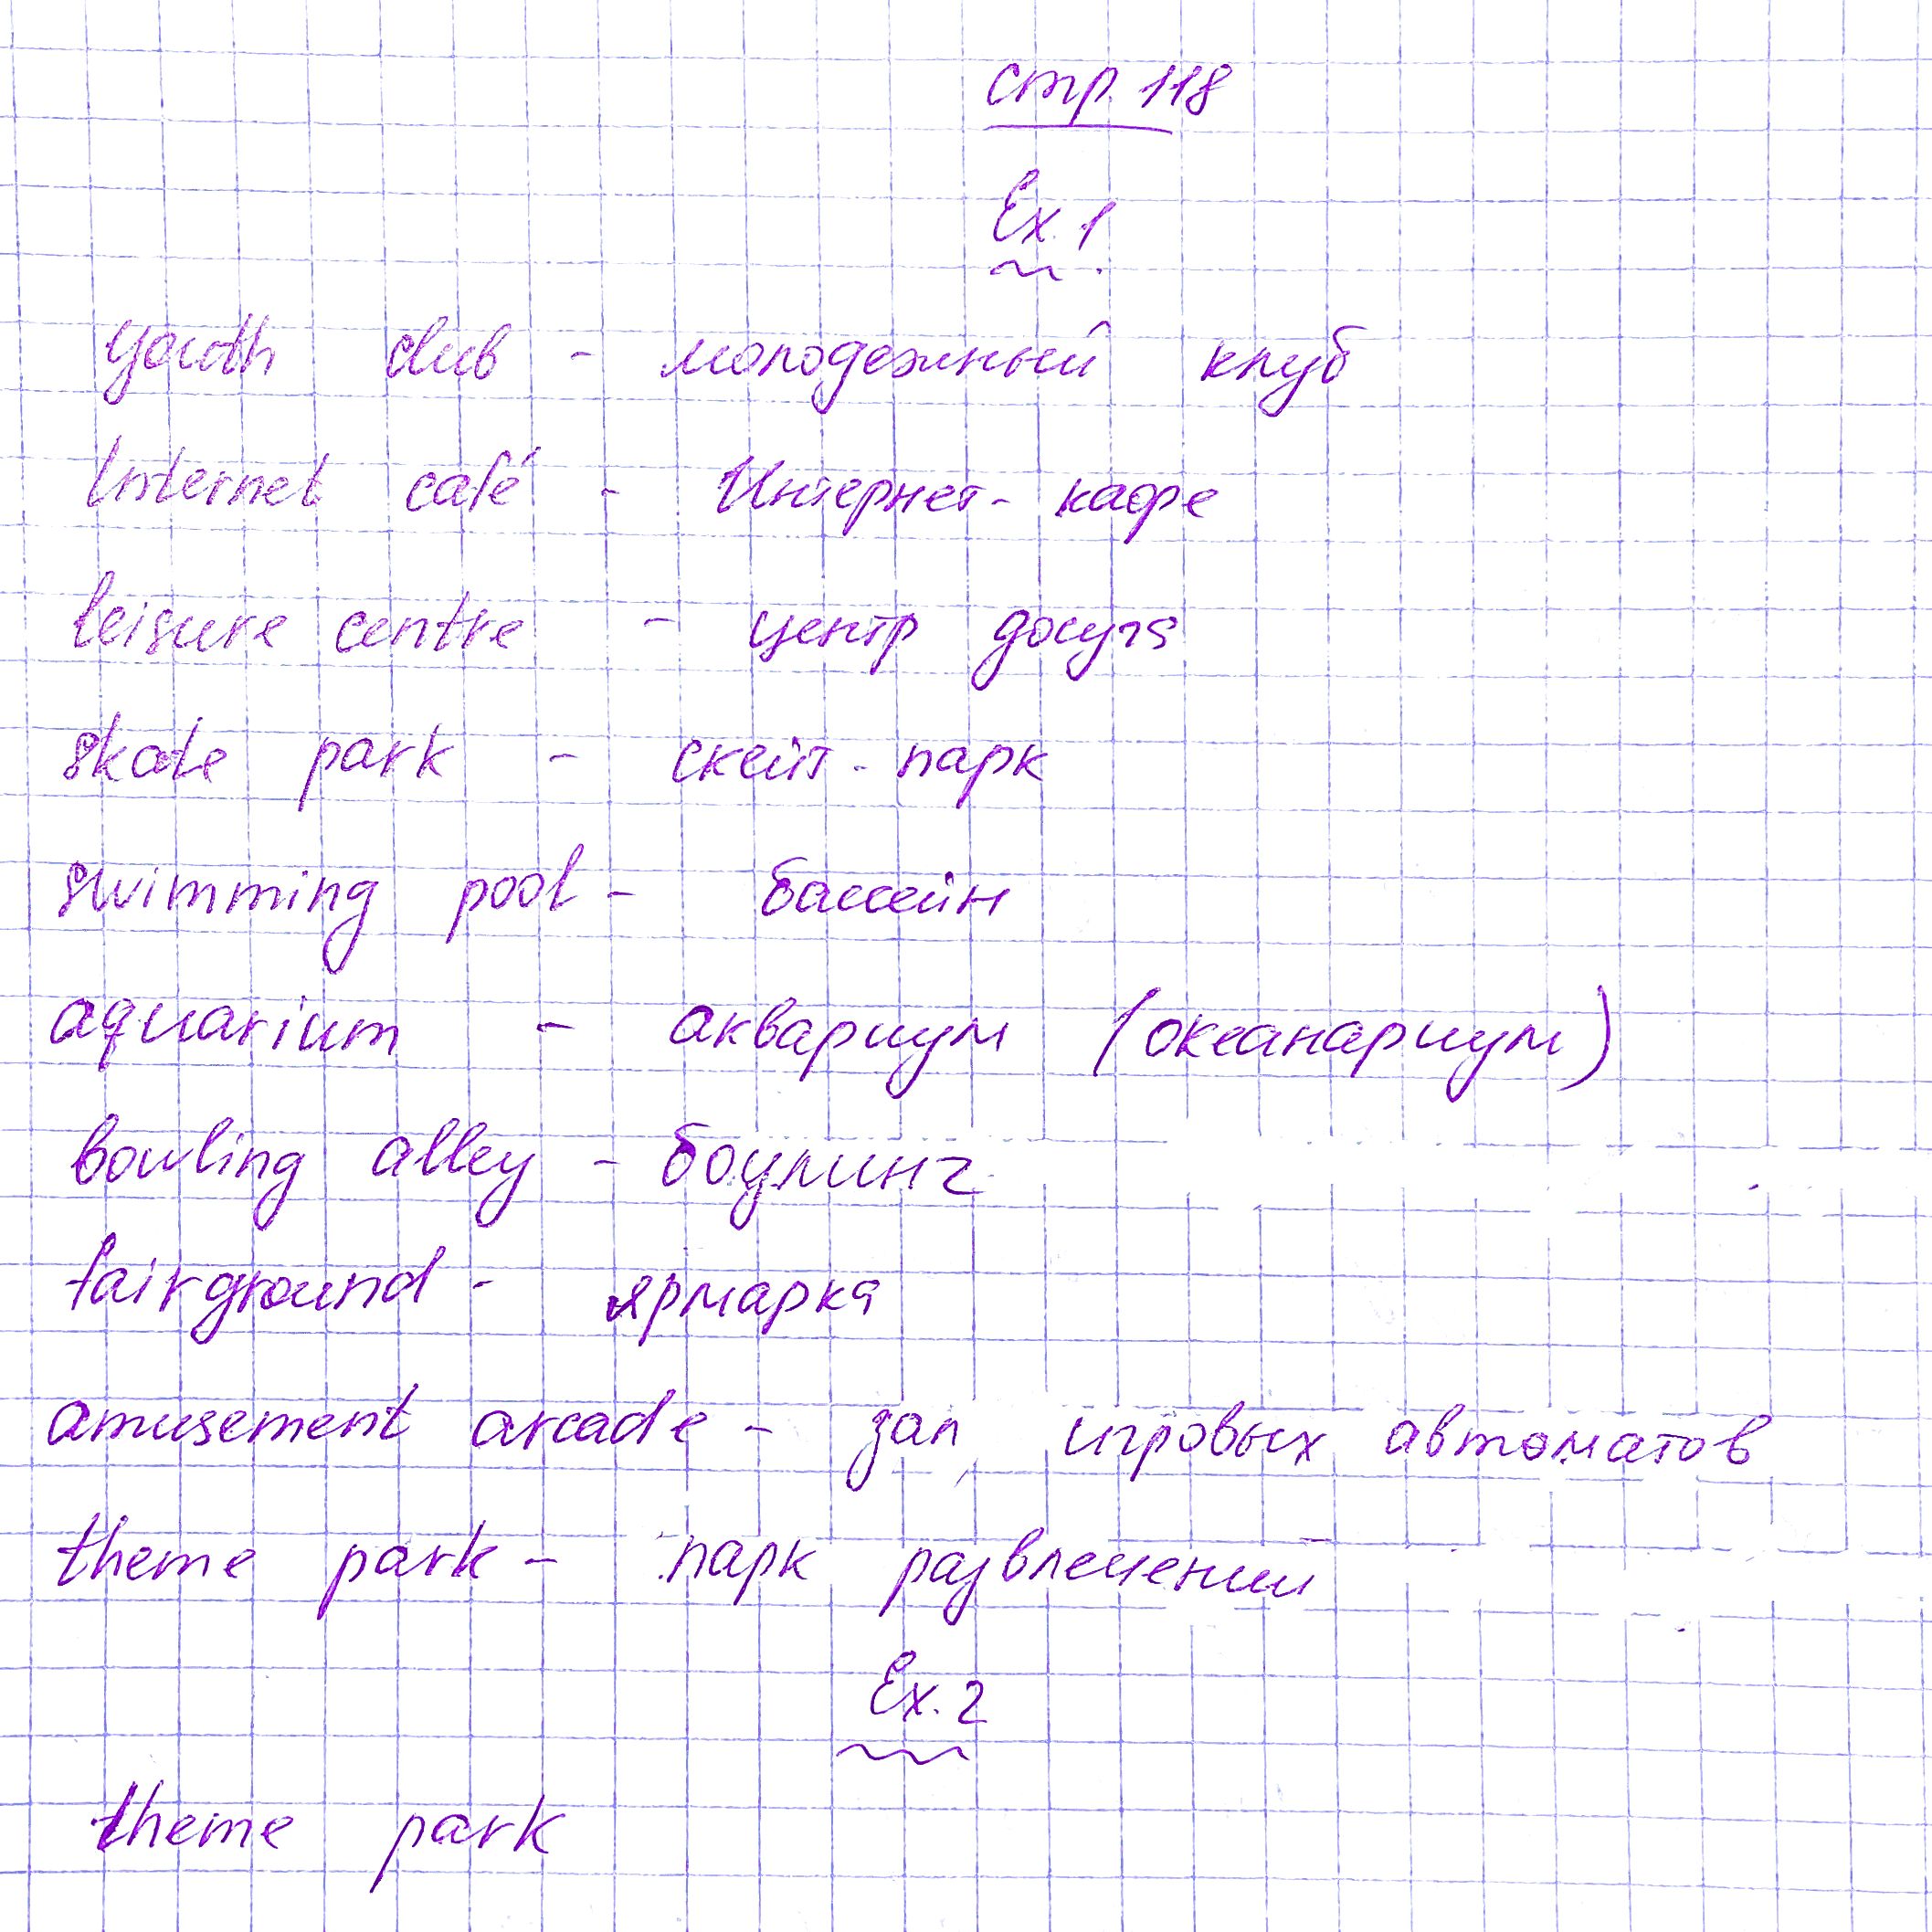 стр. 118
Ex. 1
youth club - молодежный клуб
Internet café - Интернет-кафе
leisure centre - центр досуга
skate park - скейт-парк
swimming pool - бассейн
aquarium - аквариум (океанариум)
bowling alley - боулинг
fairground - ярмарка
amusement arcade - зал игровых автоматов
theme park - парк развлечений
Ex. 2
theme park